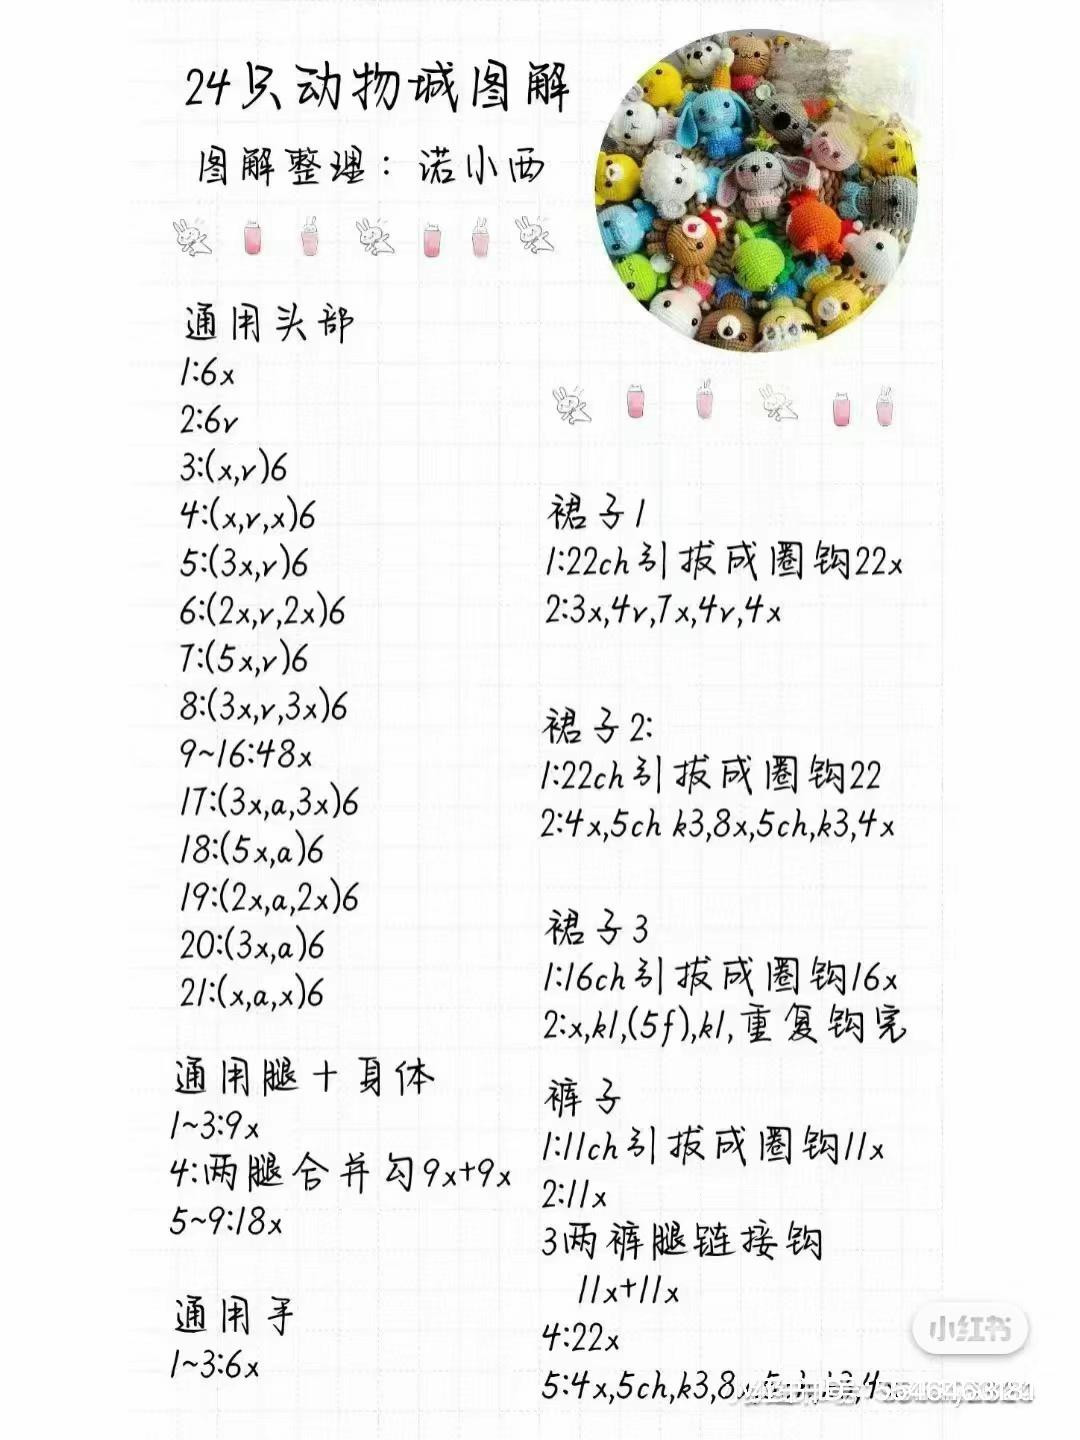 24只动物城图解
图解整理：诺小西
通用头部
1:6x
2:6v
3:(x,v)6
4:(x,v,x)6
5:(3x,v)6
6:(2x,v,2x)6
7:(5x,v)6
8:(3x,v,3x)6
9~16:48x
17:(3x,a,3x)6
18:(5x,a)6
19:(2x,a,2x)6
20:(3x,a)6
21:(x,a,x)6
通用腿+身体
1~3:9x
4:两腿合并勾9x+9x
5~9:18x
通用手
1~3:6x
裙子1
1:22ch引拔成圈钩22x
2:3x,4v,7x,4v,4x
裙子2:
1:22ch引拔成圈钩22
2:4x,5ch k3,8x,5ch,k3,4x
裙子3
1:16ch引拔成圈钩16x
2:x,k1,(5f),k1,重复钩完
裤子
1:11ch引拔成圈钩11x
2:11x
3两裤腿链接钩
11x+11x
4:22x
5:4x,5ch,k3,8x
小红书